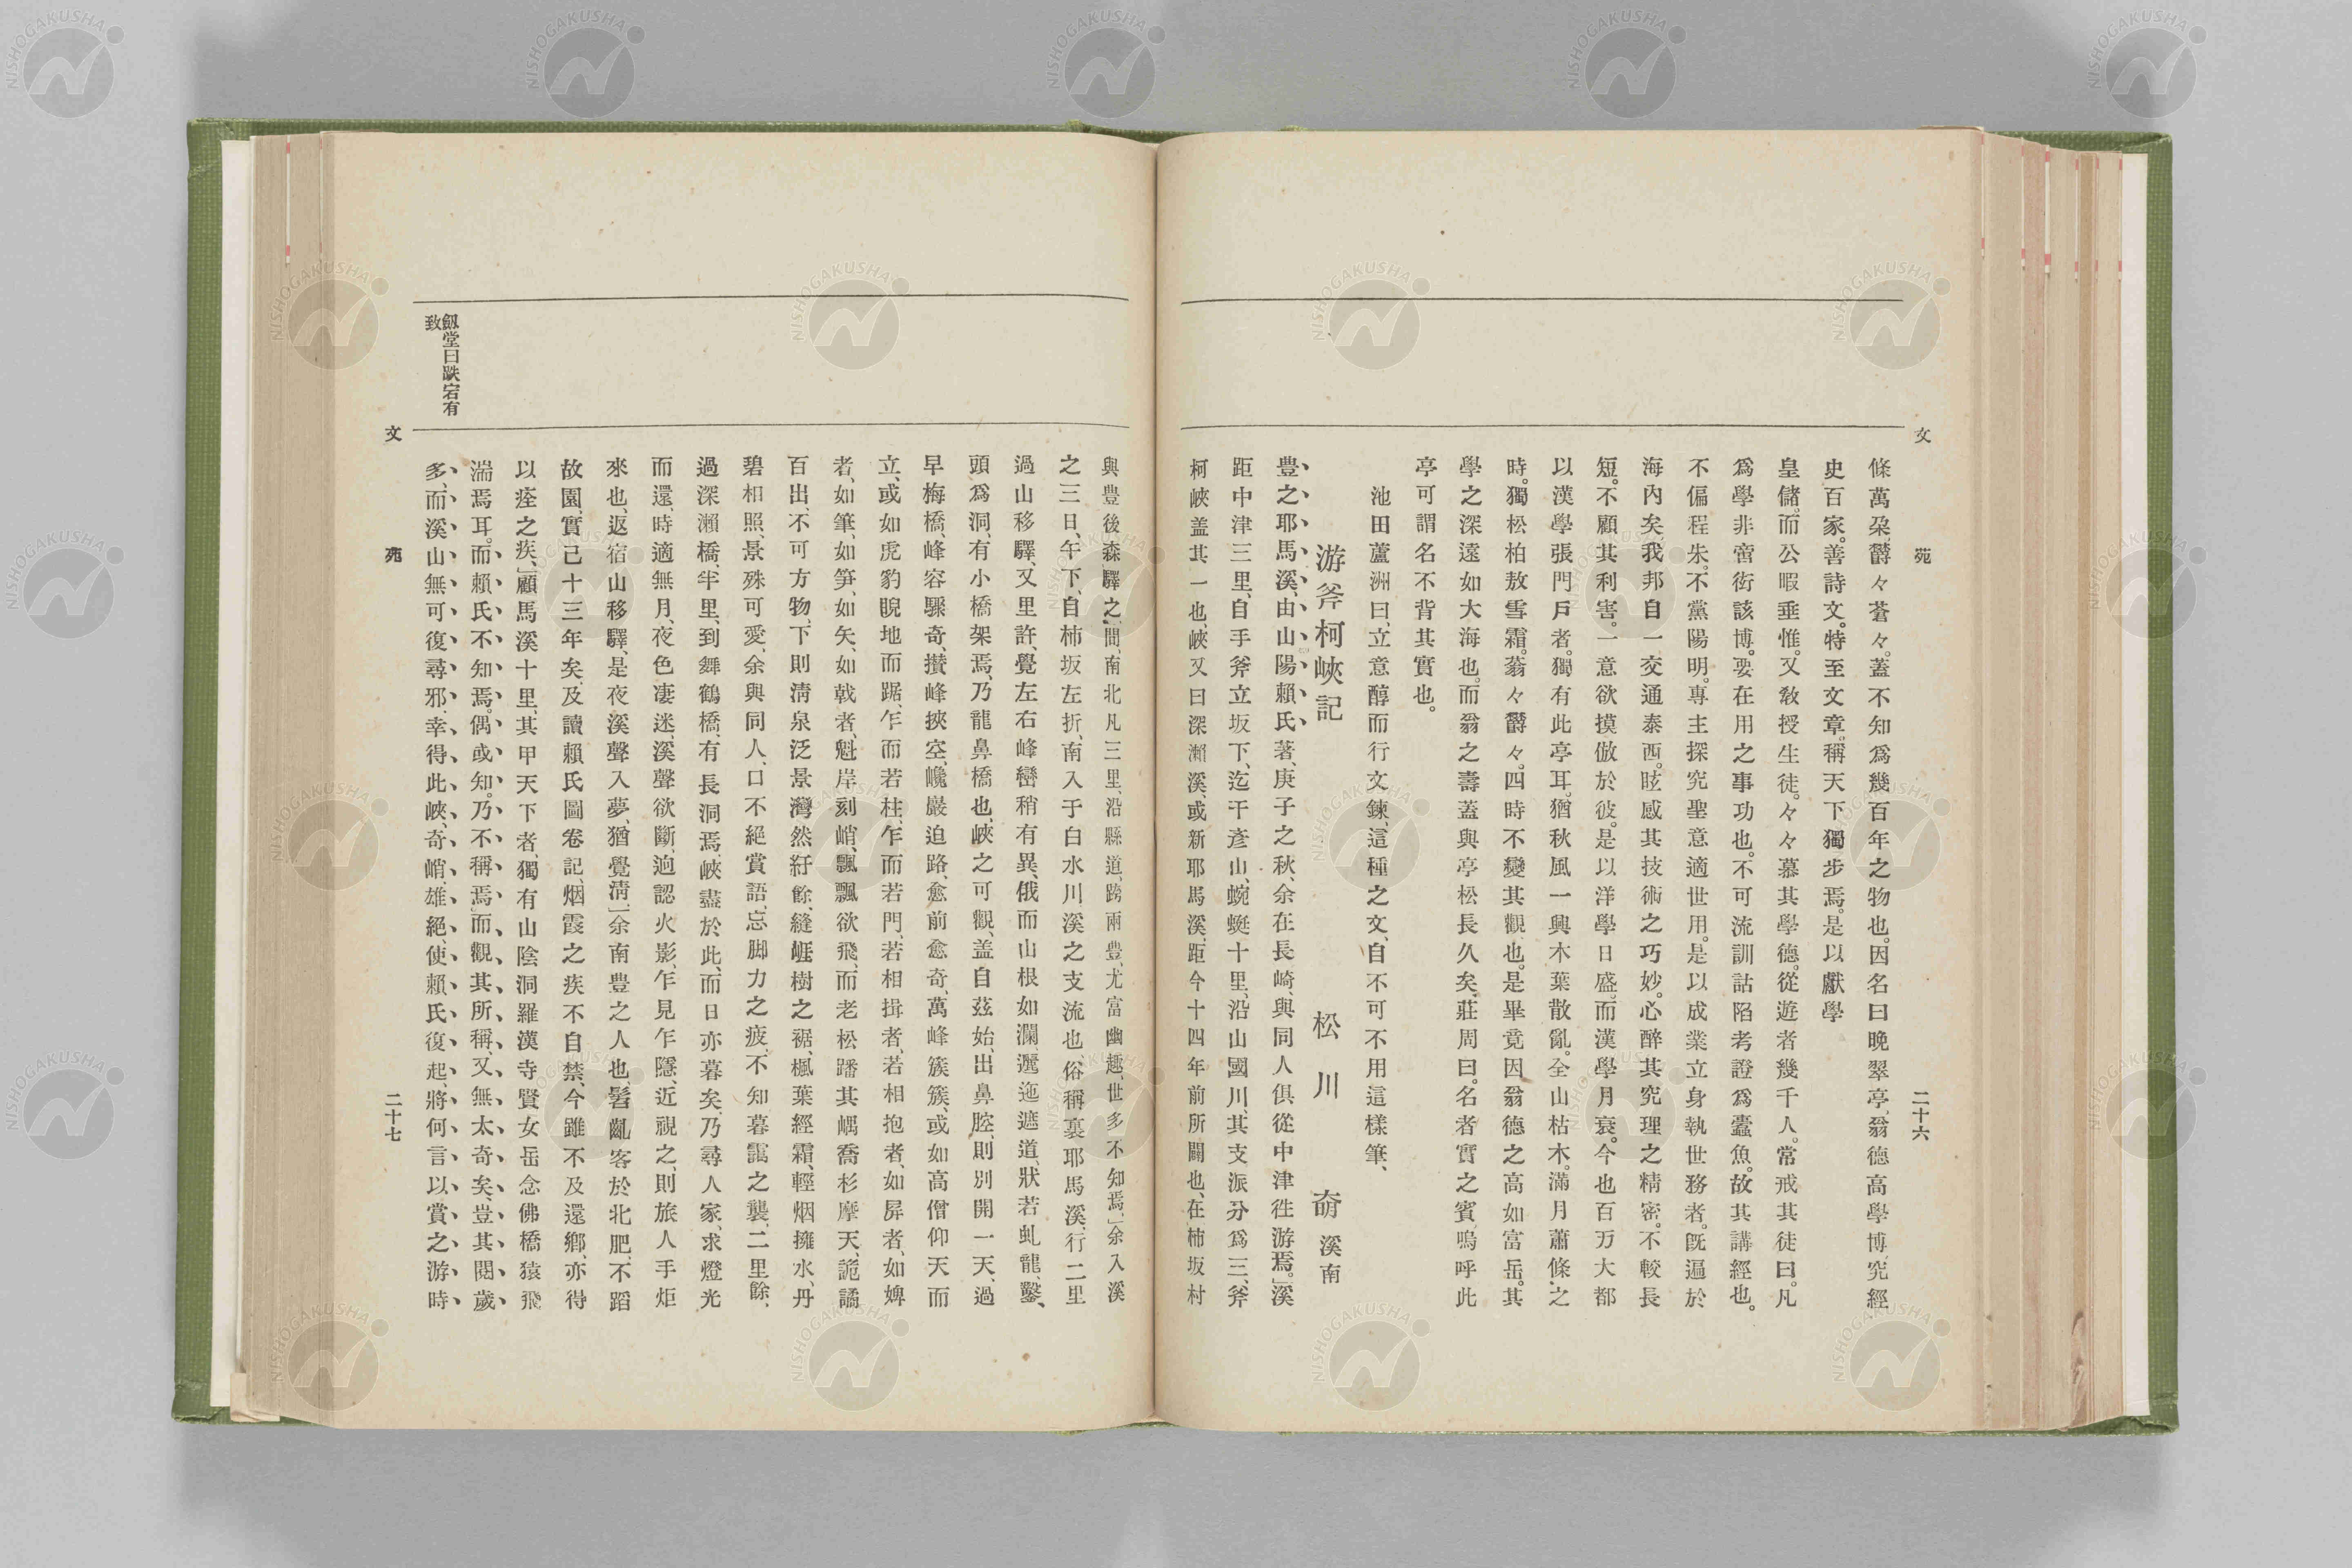 文　苑　二十六
條萬朶。欝々蒼々。蓋不知爲幾百年之物也。因名曰晚翠亭、翁德高學博、究經
史百家。善詩文。特至文章。稱天下獨步焉。是以獻學
皇儲。而公暇垂惟。又敎授生徒。々々慕其學德。從遊者幾千人。常戒其徒曰。凡
爲學非啻衒該博。要在用之事功也。不可流訓詁陷考證爲蠹魚。故其講經也。
不偏程朱。不黨陽明。專主探究聖意適世用。是以成業立身執世務者。旣遍於
海內矣。我邦自一交通泰西。眩惑其技術之巧妙。心醉其究理之精密。不較長
短。不顧其利害。一意欲摸倣於彼。是以洋學日盛。而漢學月衰。今也百万大都
以漢學張門戶者。獨有此亭耳。猶秋風一興木葉散亂。全山枯木。滿月蕭條。之
時。獨松柏敖雪霜。蓊々欝々。四時不變其觀也。是畢竟因翁德之高如富岳。其
學之深遠如大海也。而翁之壽蓋與亭松長久矣。莊周曰。名者實之賓、嗚呼此
亭可謂名不背其實也。
池田蘆洲曰、立意醇而行文鍊、這種之文、自不可不用這樣筆、
游斧柯峽記　松川　奇溪南
豊之耶馬溪、由山陽賴氏著、庚子之秋、余在長崎、與同人俱從中津徃游焉。」溪
距中津三里、自手斧立坂下、迄干彥山、蜿蜒十里、沿山國川、其支派分爲三、斧
柯峽盖其一也、峽又曰深瀨溪、或新耶馬溪、距今十四年前所闢也、在柿坂村
與豊後森驛之間、南北凡三里、沿縣道、跨兩豊、尤富幽趣、世多不知焉、」余入溪
之三日、午下、自柿坂左折、南入于白水川溪之支流也、俗稱裏耶馬溪、行二里
過山移驛、又里許、覺左右峰巒稍有異、俄而山根如瀾、邐迤遮道、狀若虬龍、鑿、
頭爲洞、有小橋架焉、乃龍鼻橋也、峽之可觀、盖自茲始、出鼻腔、則別開一天、過
早梅橋、峰容驟奇、攅峰挾空、巉巖迫路、愈前愈奇、萬峰簇簇、或如高僧仰天而
立、或如虎豹睨地而踞、乍而若柱、乍而若門、若相揖者、若相抱者、如屛者、如婢
者、如筆、如笋、如矢、如戟者、魁岸、刻峭、飄飄欲飛、而老松蹯其嵎、喬杉摩天、詭譎
百出、不可方物、下則淸泉泛景、灣然紆餘、縫崕樹之裾、楓葉經霜、輕烟擁水、丹
碧相照、景殊可愛、余與同人、口不絕賞語、忘脚力之疲、不知暮靄之襲、二里餘、
過深瀨橋、半里、到舞鶴橋、有長洞焉、峽盡於此、而日亦暮矣、乃尋人家、求燈光
而還、時適無月、夜色凄迷、溪聲欲斷、逈認火影、乍見乍隱、近視之、則旅人手炬
來也、返宿山移驛、是夜溪聲入夢、猶覺淸、」余南豊之人也、髫齓客於北肥、不蹈
故園、實已十三年矣、及讀賴氏圖卷記、烟霞之疾不自禁、今雖不及還鄕、亦得
以痊之疾、」顧馬溪十里、其甲天下者、獨有山陰洞羅漢寺賢女岳念佛橋猿飛
湍焉耳。而賴氏不知焉。偶或知。乃不稱焉、」而觀其所稱、又無太奇矣、豈其閱歲
多、而溪山無可復尋邪、幸得此峽、奇峭、雄絕、使賴氏復起、將何言以賞之、游時
劔堂曰跌宕有
致
文　苑　二十七